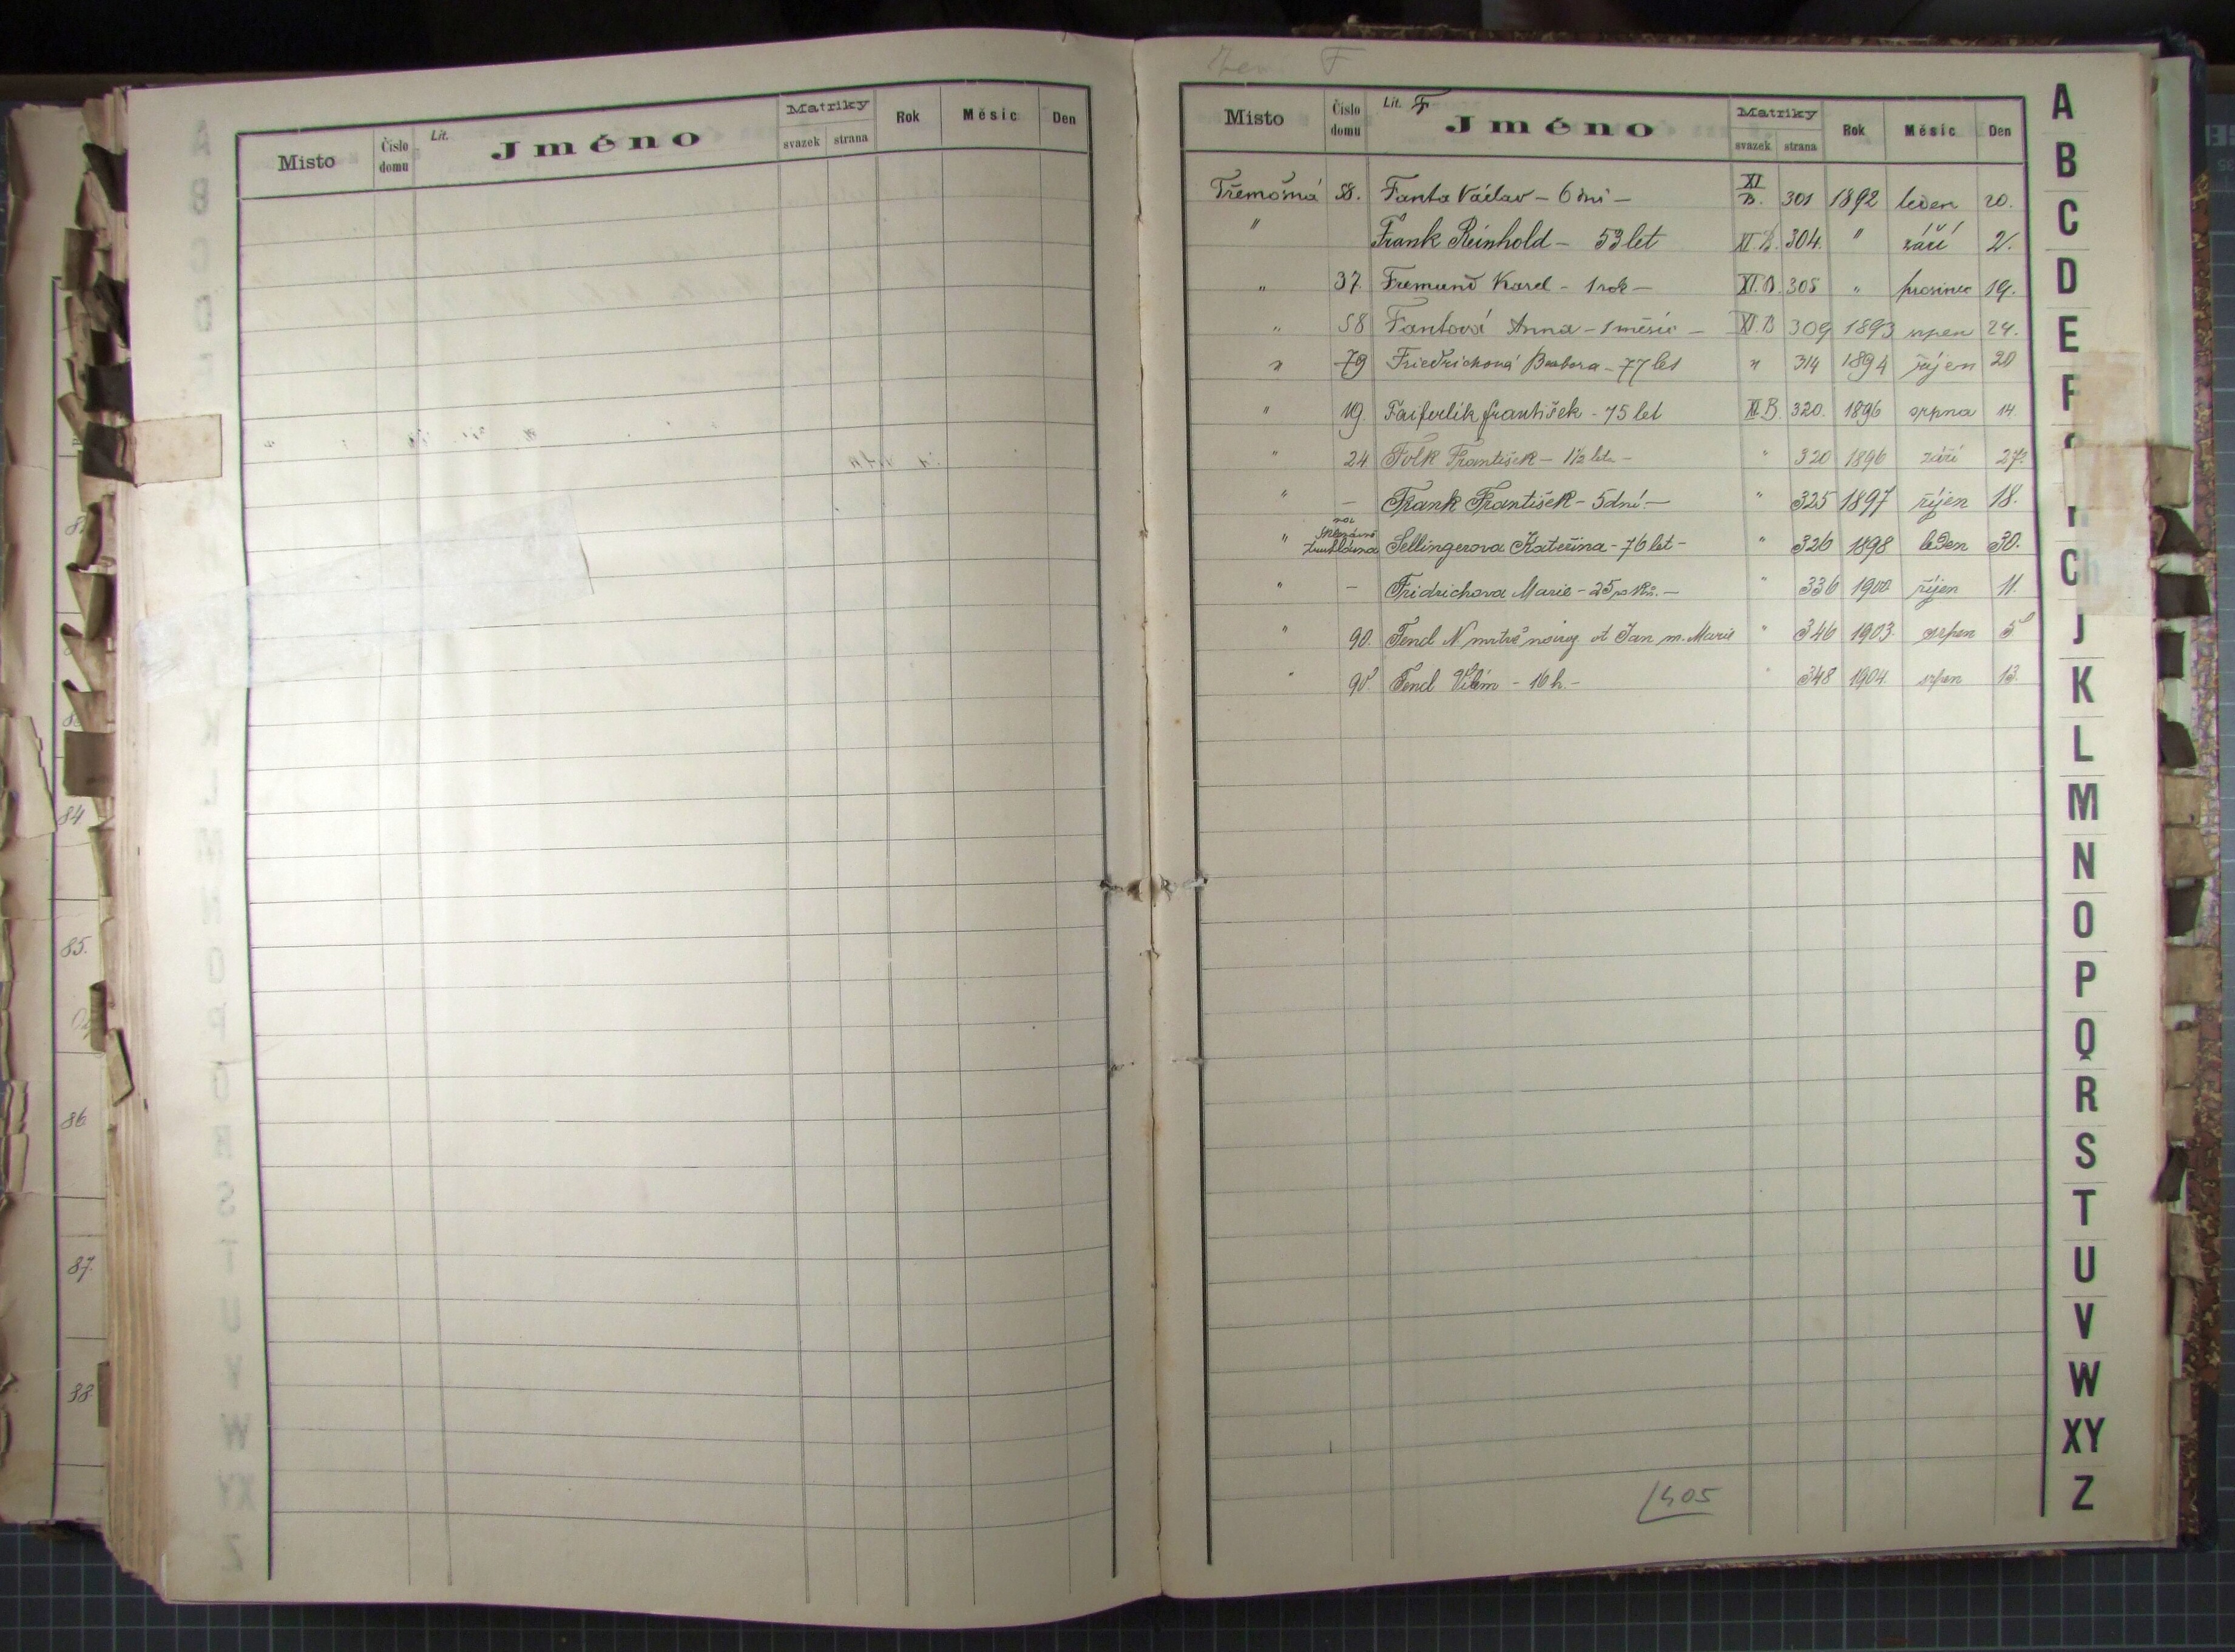 Místo Číslo domu Lit. Jméno Matriky svazek strana Rok Měsíc Den
84
85.
86
87.
88
F
Místo Číslo domu Lit. F Jméno Matriky svazek strana Rok Měsíc Den
Třemošná 58. Fanta Václav - 6 dní - XI B. 301 1892 leden 20.
" Frank Reinhold - 53 let XI. B. 304. " září 2.
" 37. Fremund Karel - 1 rok - XI. B. 305 " prosinec 19.
" 58 Fantová Anna - 1 měsíc - XI. B 309 1893 srpen 24.
" 79 Friedrichová Barbora - 77 let " 314 1894 říjen 20
" 19. Faiferlík František - 75 let XI. B. 320. 1896 srpna 14.
" 24 Folk František - 1½ leta - " 320 1896 září 27.
" - Frank František - 5 dní - " 325 1897 říjen 18.
" Fellingerova Kateřina - 76 let - " 326 1898 leden 30.
" - Fridrichova Marie - 25 - " 336 1900 říjen 11.
" 90. Fencl N mrtvě ot Jan m. Marie " 346 1903. srpen 5
" 90. Fencl Vilém - 16 h. - " 348 1904. srpen 13.
405
A
B
C
D
E
F
J
K
L
M
N
O
P
Q
R
S
T
U
V
W
XY
Z